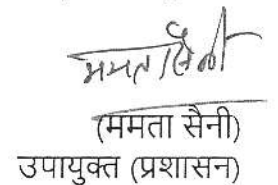 ममता सैनी
(ममता सैनी)
उपायुक्त (प्रशासन)